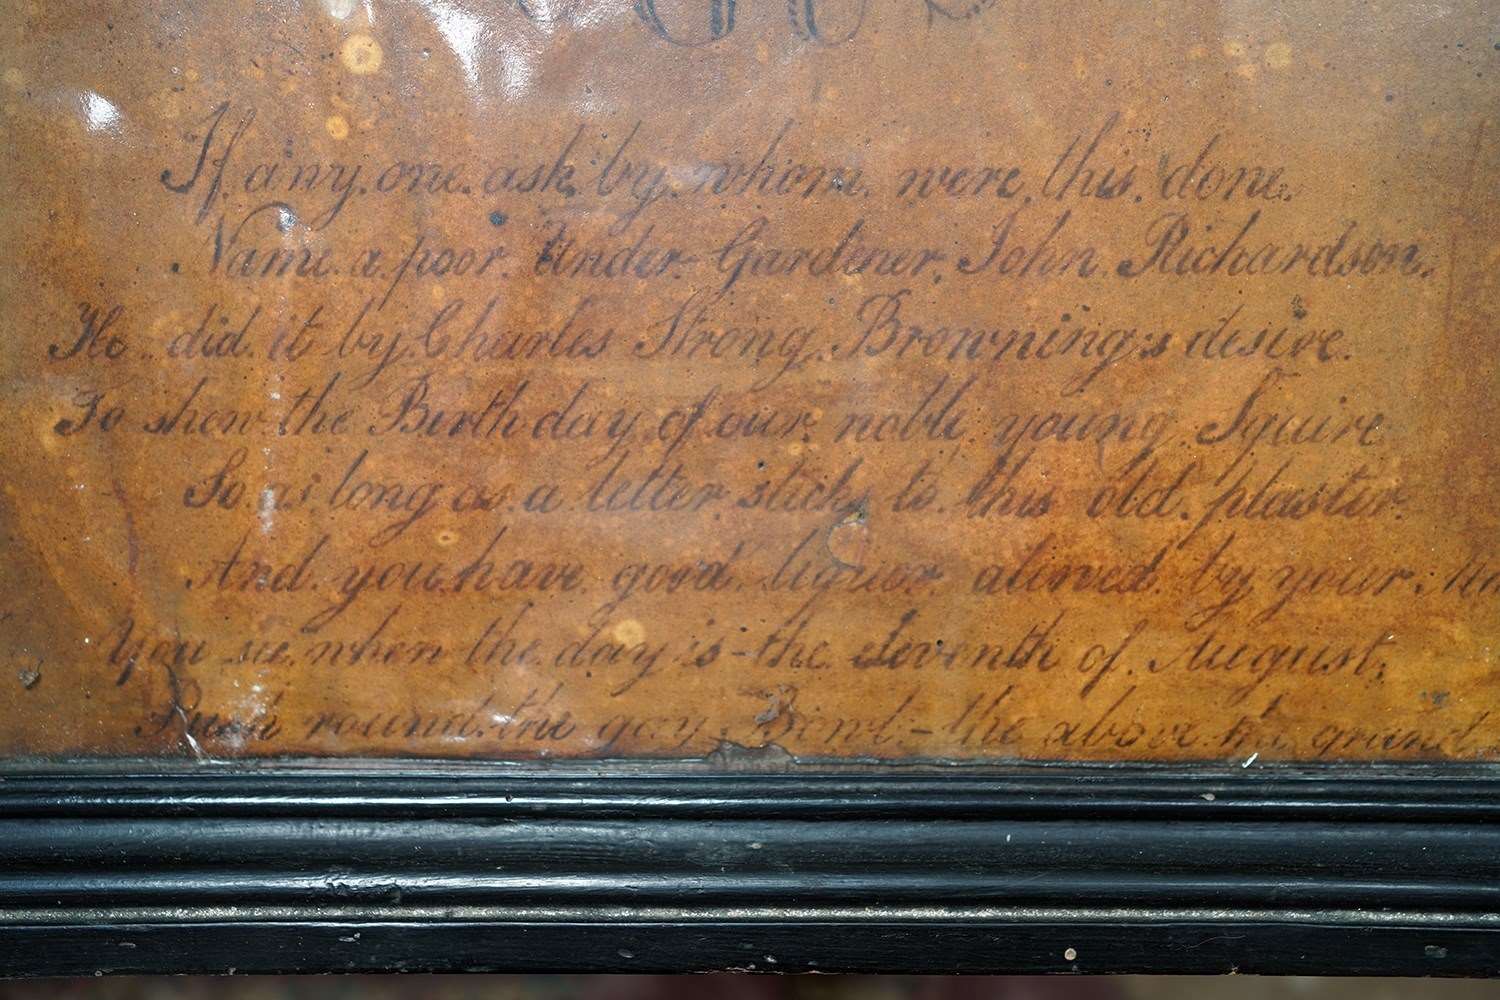 If any one ask by whom were this done
Name a poor Under Gardener, John Richardson,
He did it by Charles Strong Browning's desire
To shew the Birth day of our noble young Squire
So as long as a letter sticks to this old plaister
And you have good liquor alowed by your
You see when the day is - the eleventh of August,
Push round the gay Bowl - the above